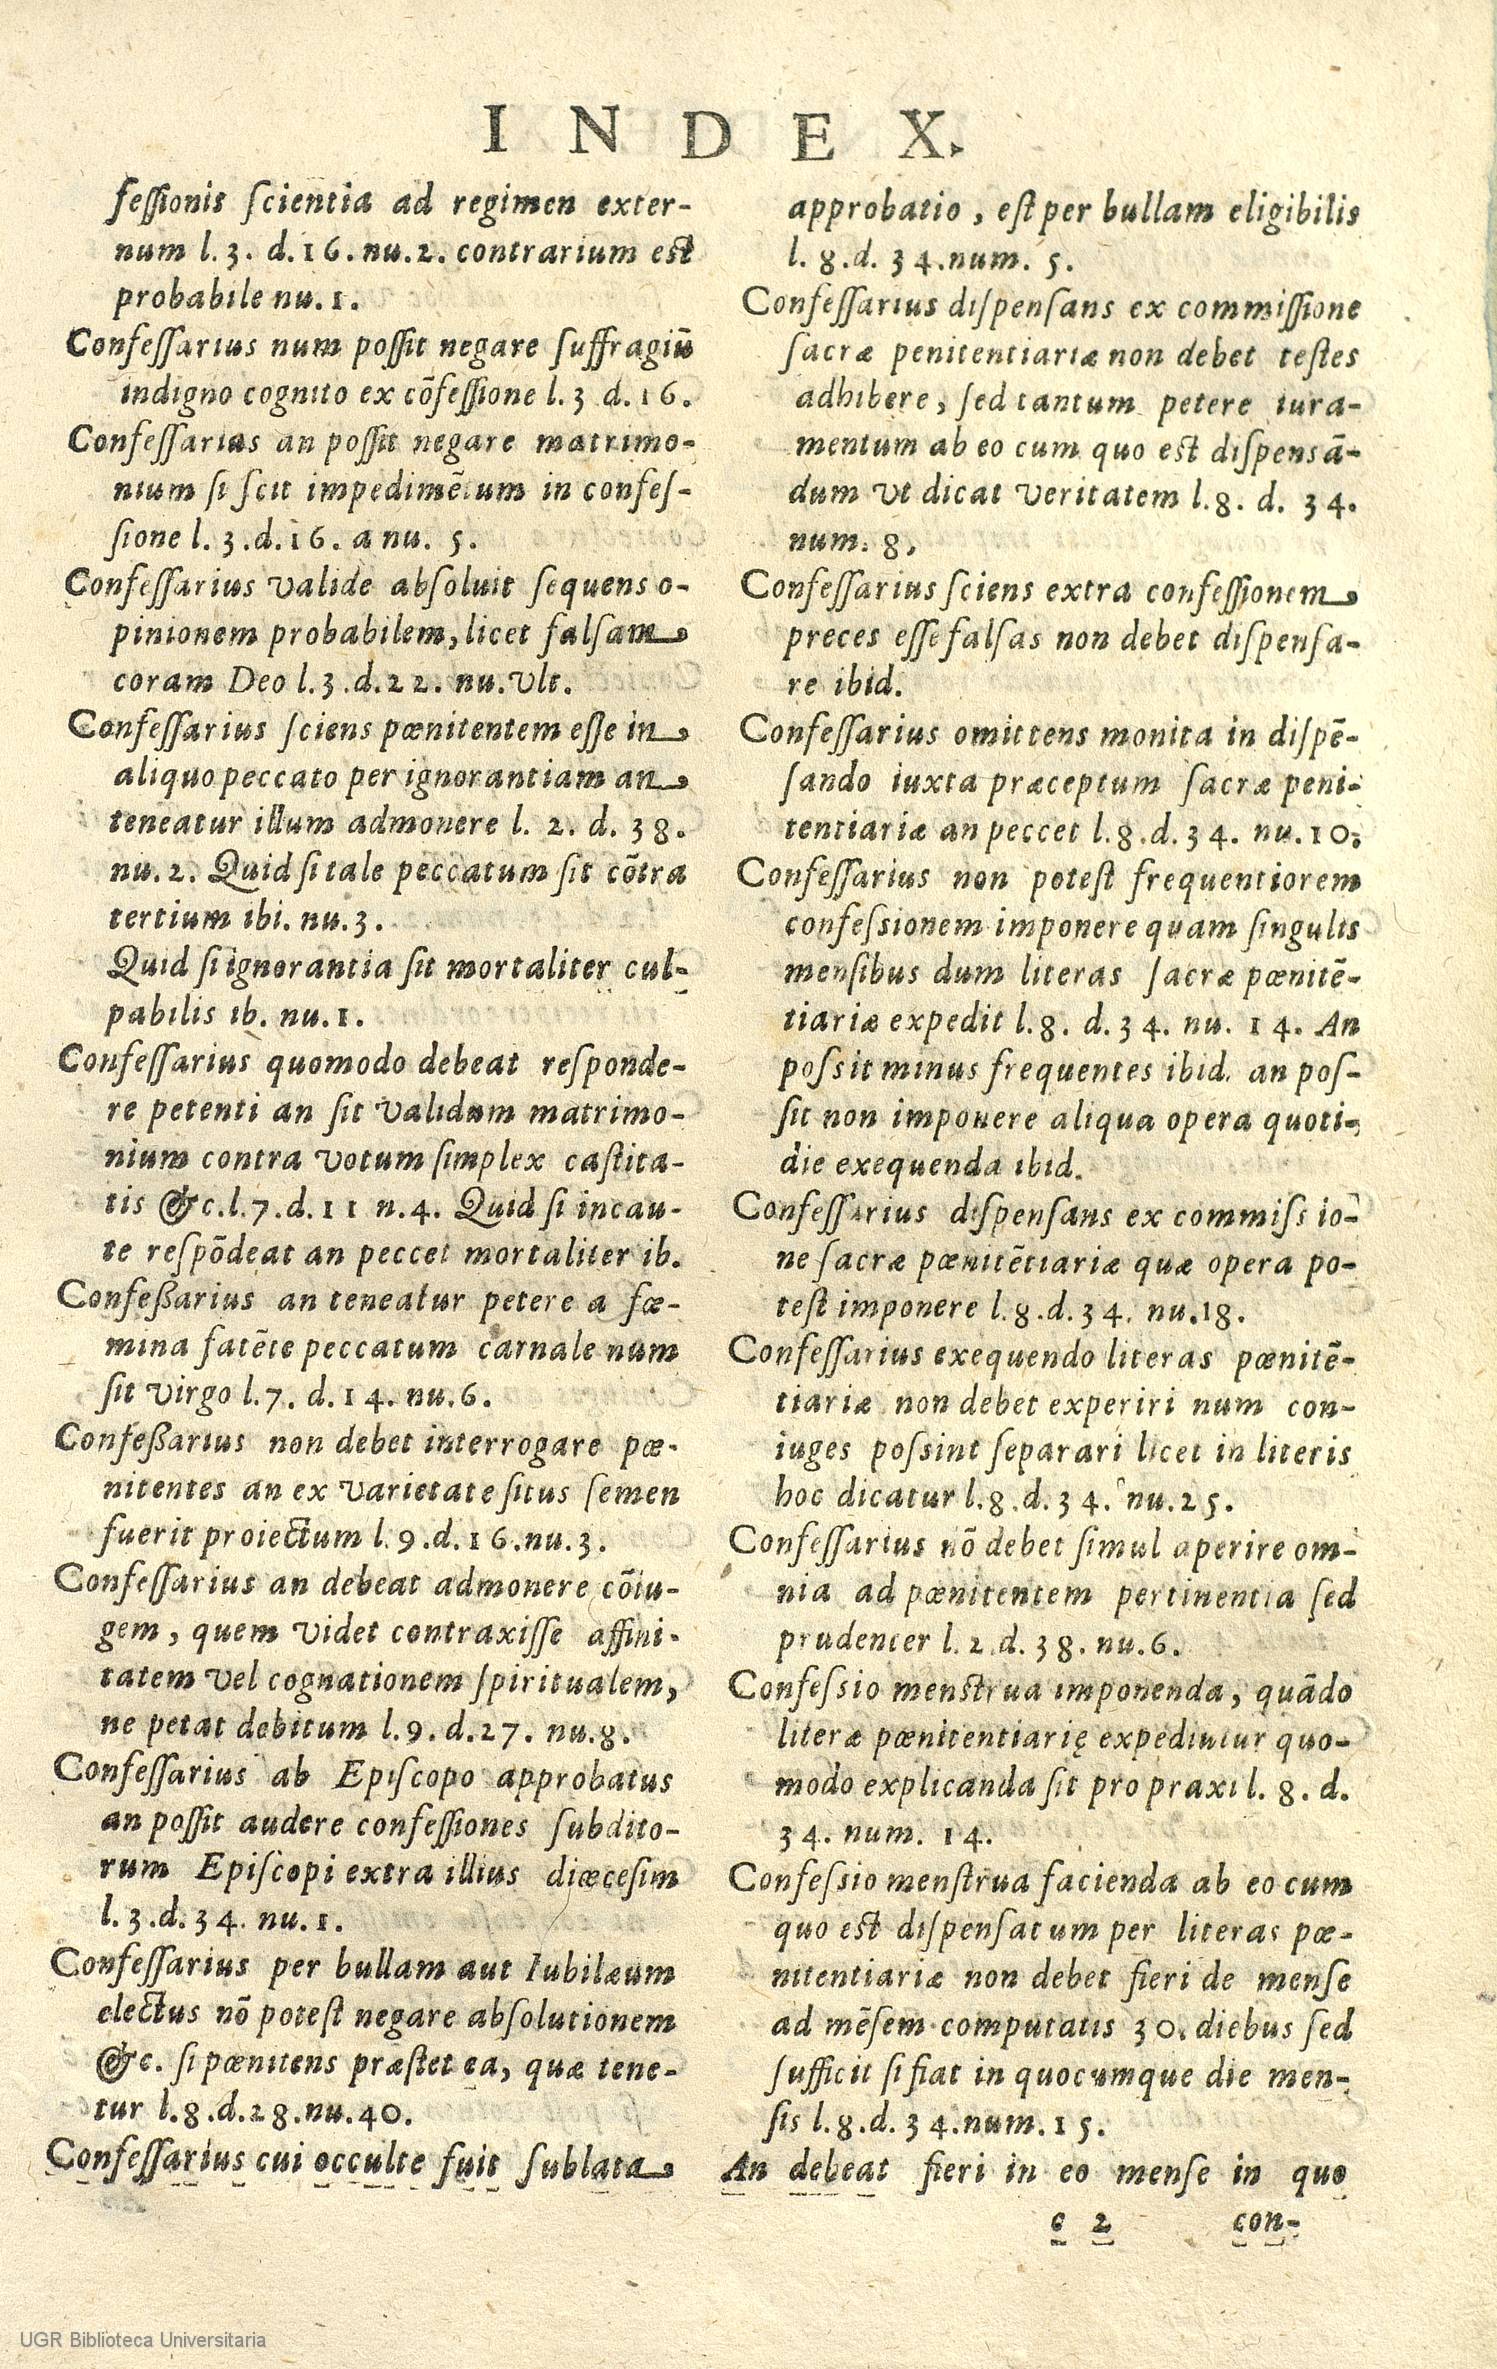 INDEX.
fessionis scientia ad regimen exter-
num l. 3. d. 16. nu. 2. contrarium est
probabile nu. 1.
Confessarius num possit negare suffragiū
indigno cognito ex cōfessione l. 3 d. 16.
Confessarius an possit negare matrimo-
nium si scit impedimētum in confes-
sione l. 3. d. 16. a nu. 5.
Confessarius valide absoluit sequens o-
pinionem probabilem, licet falsam
coram Deo l. 3. d. 22. nu. vlt.
Confessarius sciens pœnitentem esse in
aliquo peccato per ignorantiam an
teneatur illum admonere l. 2. d. 38.
nu. 2. Quid si tale peccatum sit cōtra
tertium ibi. nu. 3.
Quid si ignorantia sit mortaliter cul-
pabilis ib. nu. 1.
Confessarius quomodo debeat responde-
re petenti an sit validum matrimo-
nium contra votum simplex castita-
tis &c. l. 7. d. 11 n. 4. Quid si incau-
te respōdeat an peccet mortaliter ib.
Confeßarius an teneatur petere a fœ-
mina fatēte peccatum carnale num
sit virgo l. 7. d. 14. nu. 6.
Confeßarius non debet interrogare pœ-
nitentes an ex varietate situs semen
fuerit proiectum l. 9. d. 16. nu. 3.
Confessarius an debeat admonere cōiu-
gem, quem videt contraxisse affini-
tatem vel cognationem spiritualem,
ne petat debitum l. 9. d. 27. nu. 8.
Confessarius ab Episcopo approbatus
an possit audere confessiones subdito-
rum Episcopi extra illius diœcesim
l. 3. d. 34. nu. 1.
Confessarius per bullam aut Iubilæum
electus nō potest negare absolutionem
&c. si pœnitens præstet ea, quæ tene-
tur l. 8. d. 28. nu. 40.
Confessarius cui occulte fuit sublata
approbatio, est per bullam eligibilis
l. 8. d. 34. num. 5.
Confessarius dispensans ex commissione
sacræ penitentiariæ non debet testes
adhibere, sed tantum petere iura-
mentum ab eo cum quo est dispensā-
dum vt dicat veritatem l. 8. d. 34.
num. 8.
Confessarius sciens extra confessionem
preces esse falsas non debet dispensa-
re ibid.
Confessarius omittens monita in dispē-
sando iuxta præceptum sacræ peni-
tentiariæ an peccet l. 8. d. 34. nu. 10.
Confessarius non potest frequentiorem
confessionem imponere quam singulis
mensibus dum literas sacræ pœnitē-
tiariæ expedit l. 8. d. 34. nu. 14. An
possit minus frequentes ibid. an pos-
sit non imponere aliqua opera quoti-
die exequenda ibid.
Confessarius dispensans ex commissio-
ne sacræ pœnitētiariæ quæ opera po-
test imponere l. 8. d. 34. nu. 18.
Confessarius exequendo literas pœnitē-
tiariæ non debet experiri num con-
iuges possint separari licet in literis
hoc dicatur l. 8. d. 34. nu. 25.
Confessarius nō debet simul aperire om-
nia ad pœnitentem pertinentia sed
prudenter l. 2. d. 38. nu. 6.
Confessio menstrua imponenda, quādo
literæ pœnitentiarię expediuntur quo-
modo explicanda sit pro praxi l. 8. d.
34. num. 14.
Confessio menstrua facienda ab eo cum
quo est dispensatum per literas pœ-
nitentiariæ non debet fieri de mense
ad mēsem computatis 30. diebus sed
sufficit si fiat in quocumque die men-
sis l. 8. d. 34. num. 15.
An debeat fieri in eo mense in quo
c 2 con-
UGR Biblioteca Universitaria